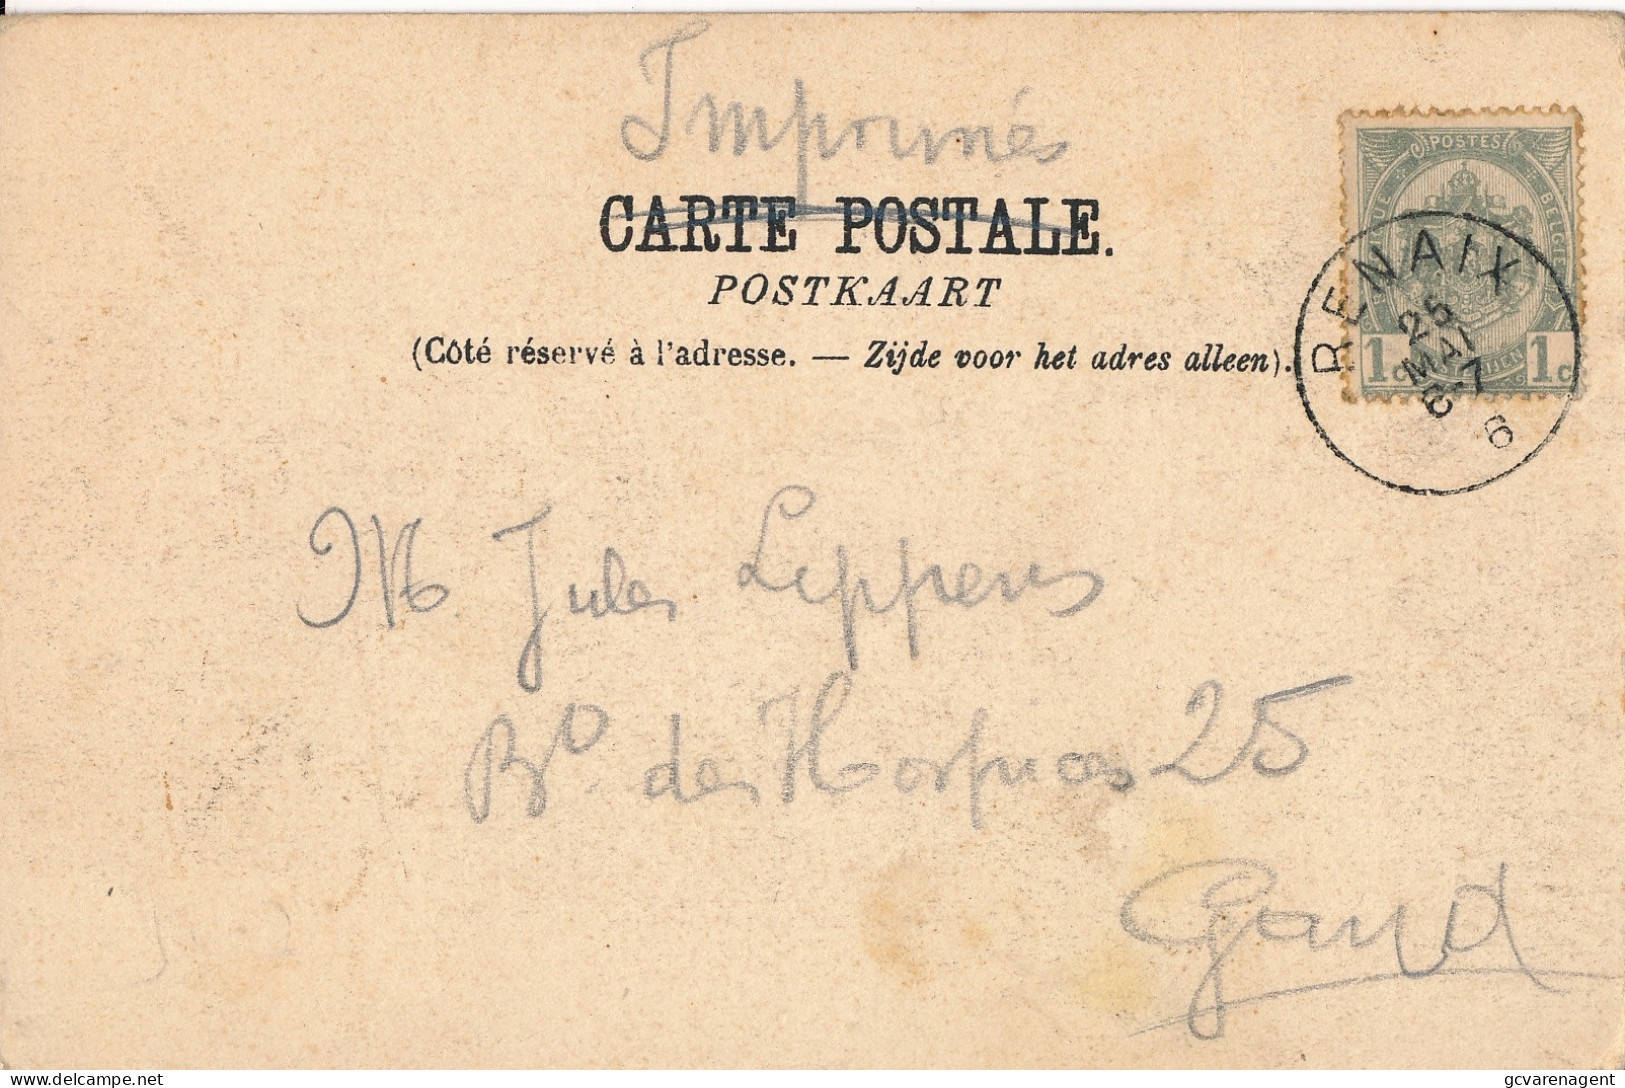 Imprimés
CARTE POSTALE.
POSTKAART
(Côté réservé à l'adresse. — Zijde voor het adres alleen).
POSTES
BELGIE
1c 1c
RENAIX
25
MAI
7
6
M. Jules Leppens
Bd. des Hospices 25
Gand
delcampe.net
gcvarenagent